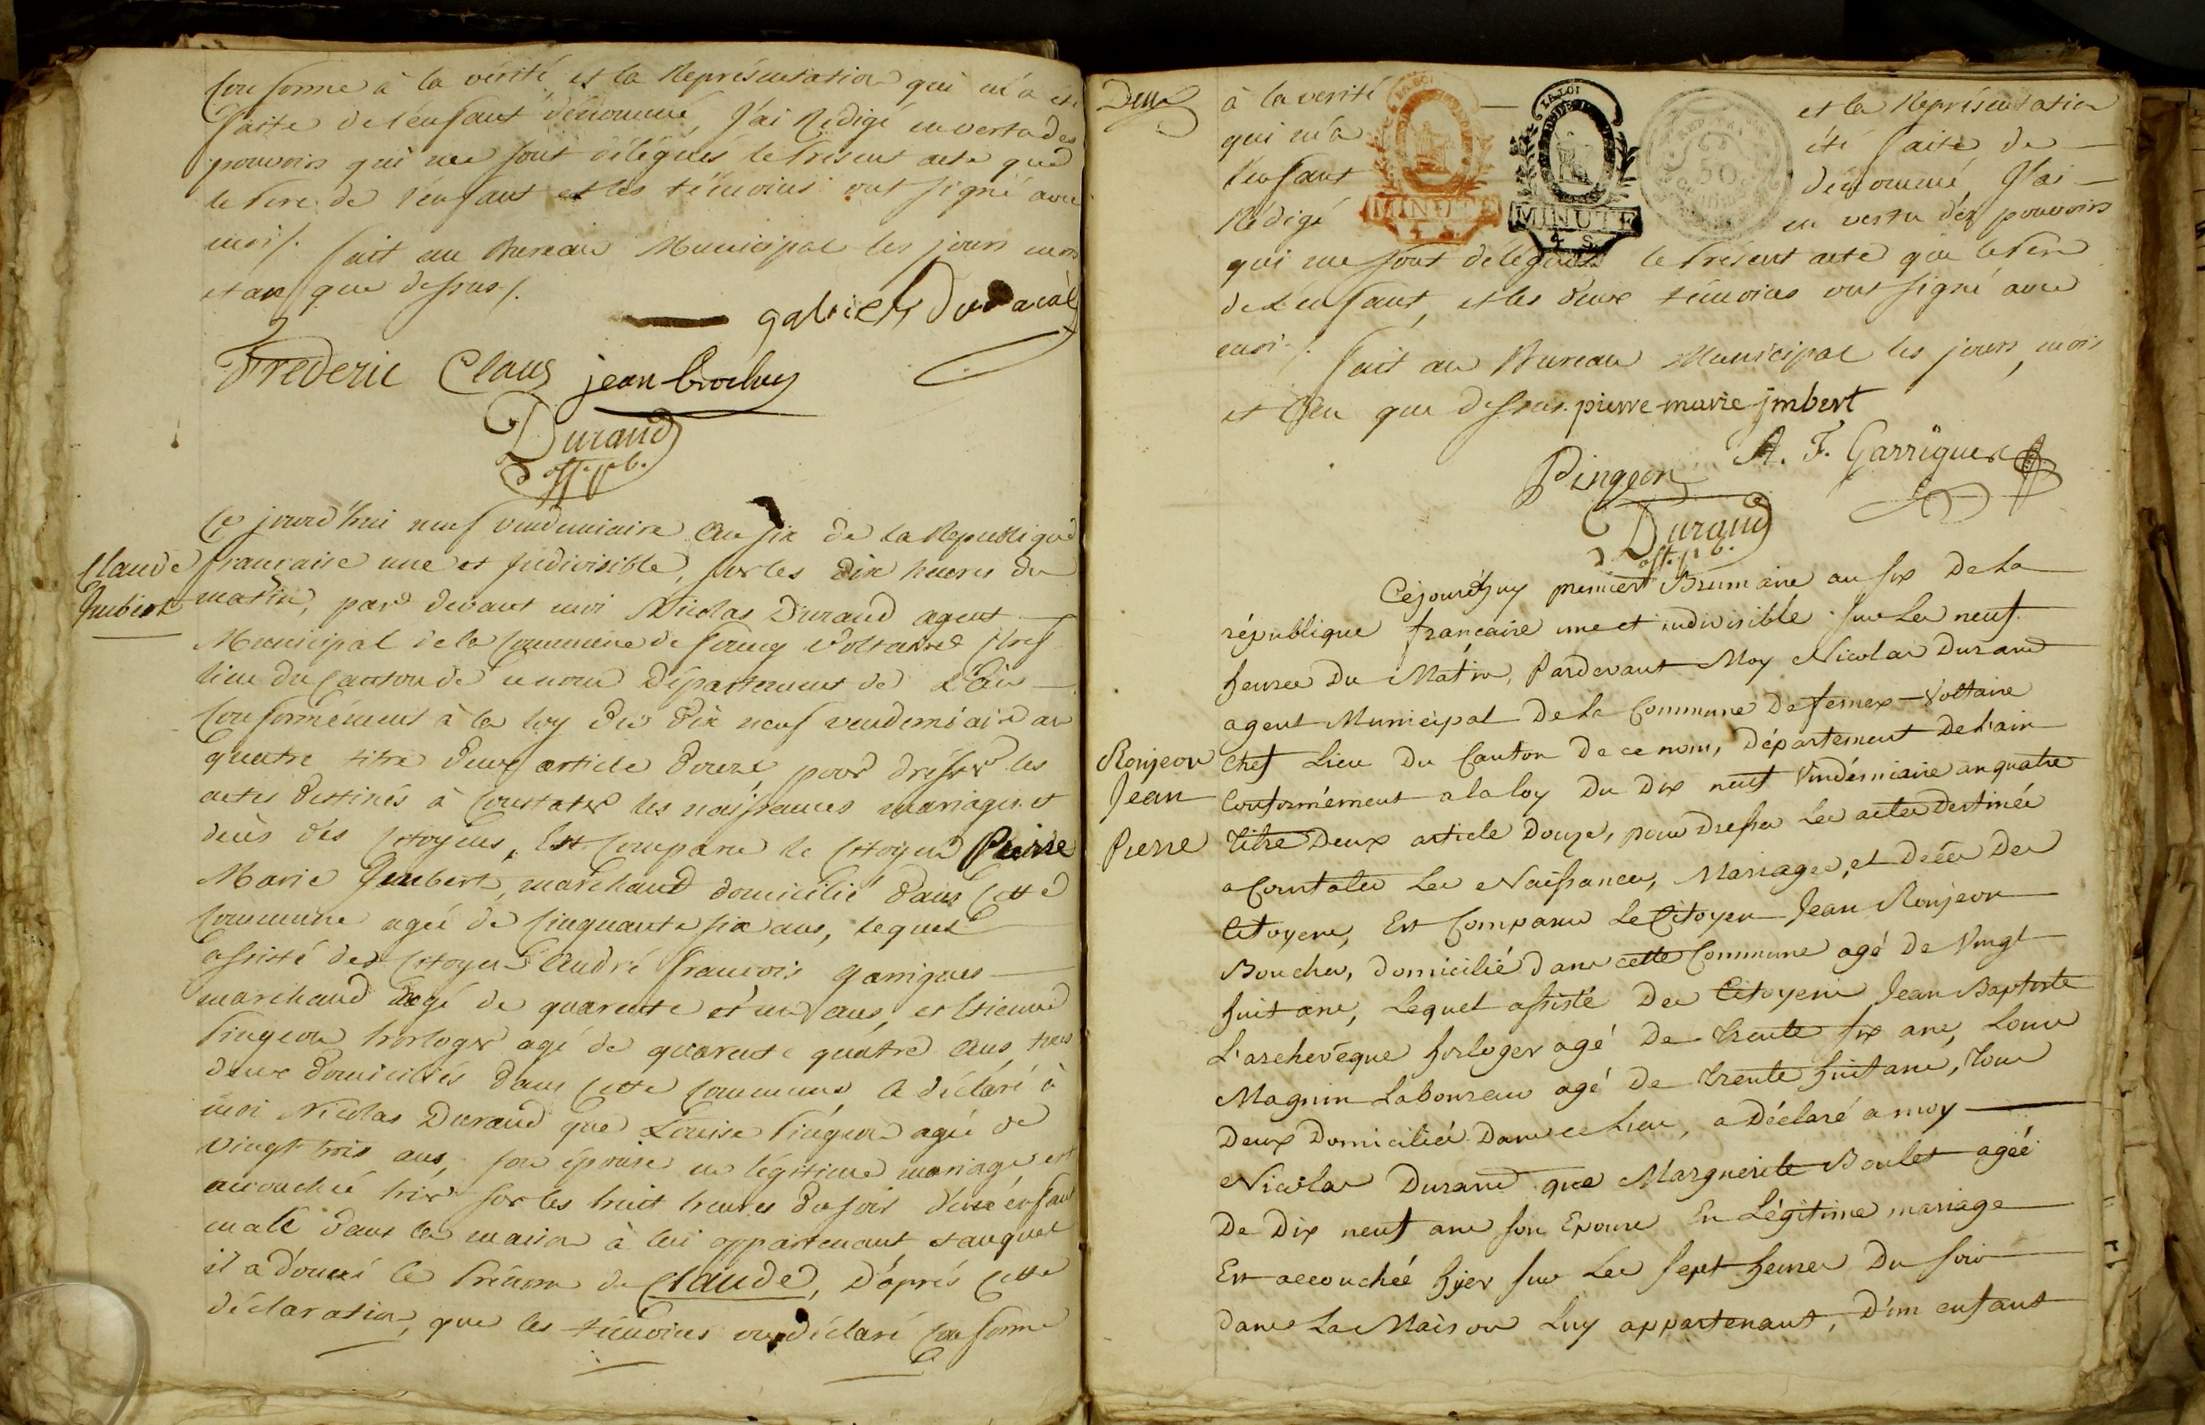 Conforme à la vérité, et la Représentation qui m'a été
faite de l'enfant dénommé, J'ai Rédigé en vertu des
pouvoirs qui me sont délégués le Présent acte que
le Pere de l'enfant et les témoins ont signé avec
moi /. fait au Bureau Municipal les jours mois
et an que dessus /.
gabriel
Frederic Claus jean
Durand
off. pb.
Ce jourd'hui neuf vendemiaire an six de la Republique
Claude
Imbert
française une et Indivisible, sur les dix heures du
matin, par devant moi Nicolas Durand agent
Municipal de la Commune de Fernex Voltaire Chef
lieu du Canton de ce nom département de L'Ain
Conformément à la loy du dix neuf vendemiaire an
quatre titre deux article douze pour dresser les
actes destinés à Constater les naissances mariages et
décès des Citoyens, Est Comparu le Citoyen Pierre
Marie Imbert, marchand domicilié dans Cette
Commune agée de Cinquante six ans, lequel
assisté des Citoyens André françois garrigues
marchand agé de quarente et un ans, et Etienne
Pingeon horloger agé de quarente quatre ans, tous
deux domiciliés dans Cette Commune, a déclaré à
moi Nicolas Durand que Louise Pingeon agée de
vingt trois ans, son épouse en légitime mariage est
accouchée hier sur les huit heures du soir d'un enfant
male dans la maison à lui appartenant, et auquel
il a donné le Prénom de Claude, D'après Cette
déclaration, que les témoins ont déclaré Conforme
à la verité et la Représentation
qui m'a été faite de
l'enfant dénommé, J'ai
Rédigé en vertu des pouvoirs
LA LOI
MINUTE
LA LOI
MINUTE
4 S.
50
qui me sont délégués le Présent acte que le Pere
de L'enfant, et les deux témoins ont signé avec
moi /. fait au Bureau Municipal les jours, mois
et an que dessus. pierre marie jmbert
Pingeon A. F. Garrigues
Durand
off. pb.
Cejourd'huy premier Brumaire an six De La
république françaire une et indivisible sur Les neuf
heures Du Matin, Pardevant Moy Nicolas Durand
agent Municipal De la Commune De fernex-Voltaire
Ronjeon
Jean
Pierre
Chef Lieu Du Canton De ce nom, Département De L'ain
Conformement a la loy Du Dix neuf Vindémiaire an quatre
titre Deux article Douze, pour Dresser Les actes Destinés
a Constater Les Naissances, Mariages, et Décès Des
Citoyens, Est Comparu Le Citoyen Jean Ronjeon
Boucher, Domicilié Dans cette Commune agé De Vingt
huit ans, Lequel assisté Des Citoyens Jean Baptiste
L'archevêque horloger agé De trente six ans, Louis
Magnin Laboureur agé De trente huit ans, tous
Deux Domiciliés Dans ce Lieu, a Déclaré a moy
Nicolas Durand que Marguerite Boulet agéé
De Dix neuf ans son Epouse En Légitime mariage
Est accouchéé hyer sur Les sept heures Du soir
Dans La Maison Luy appartenant, D'un enfant